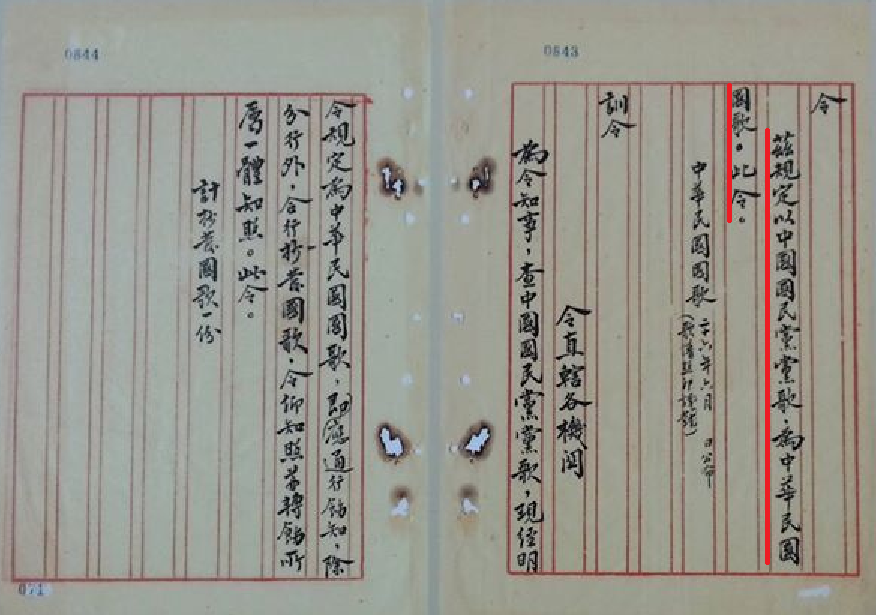 0843
令
茲規定以中國國民黨黨歌,為中華民國
國歌。此令。
中華民國國歌 二六年六月 日公布
訓令
令直轄各機關
為令知事,查中國國民黨黨歌,現經明
0844
令規定為中華民國國歌,即應通行飭知,除
分行外,合行抄發國歌,令仰知照並轉飭所
屬一體知照。此令。
計抄發國歌一份
071